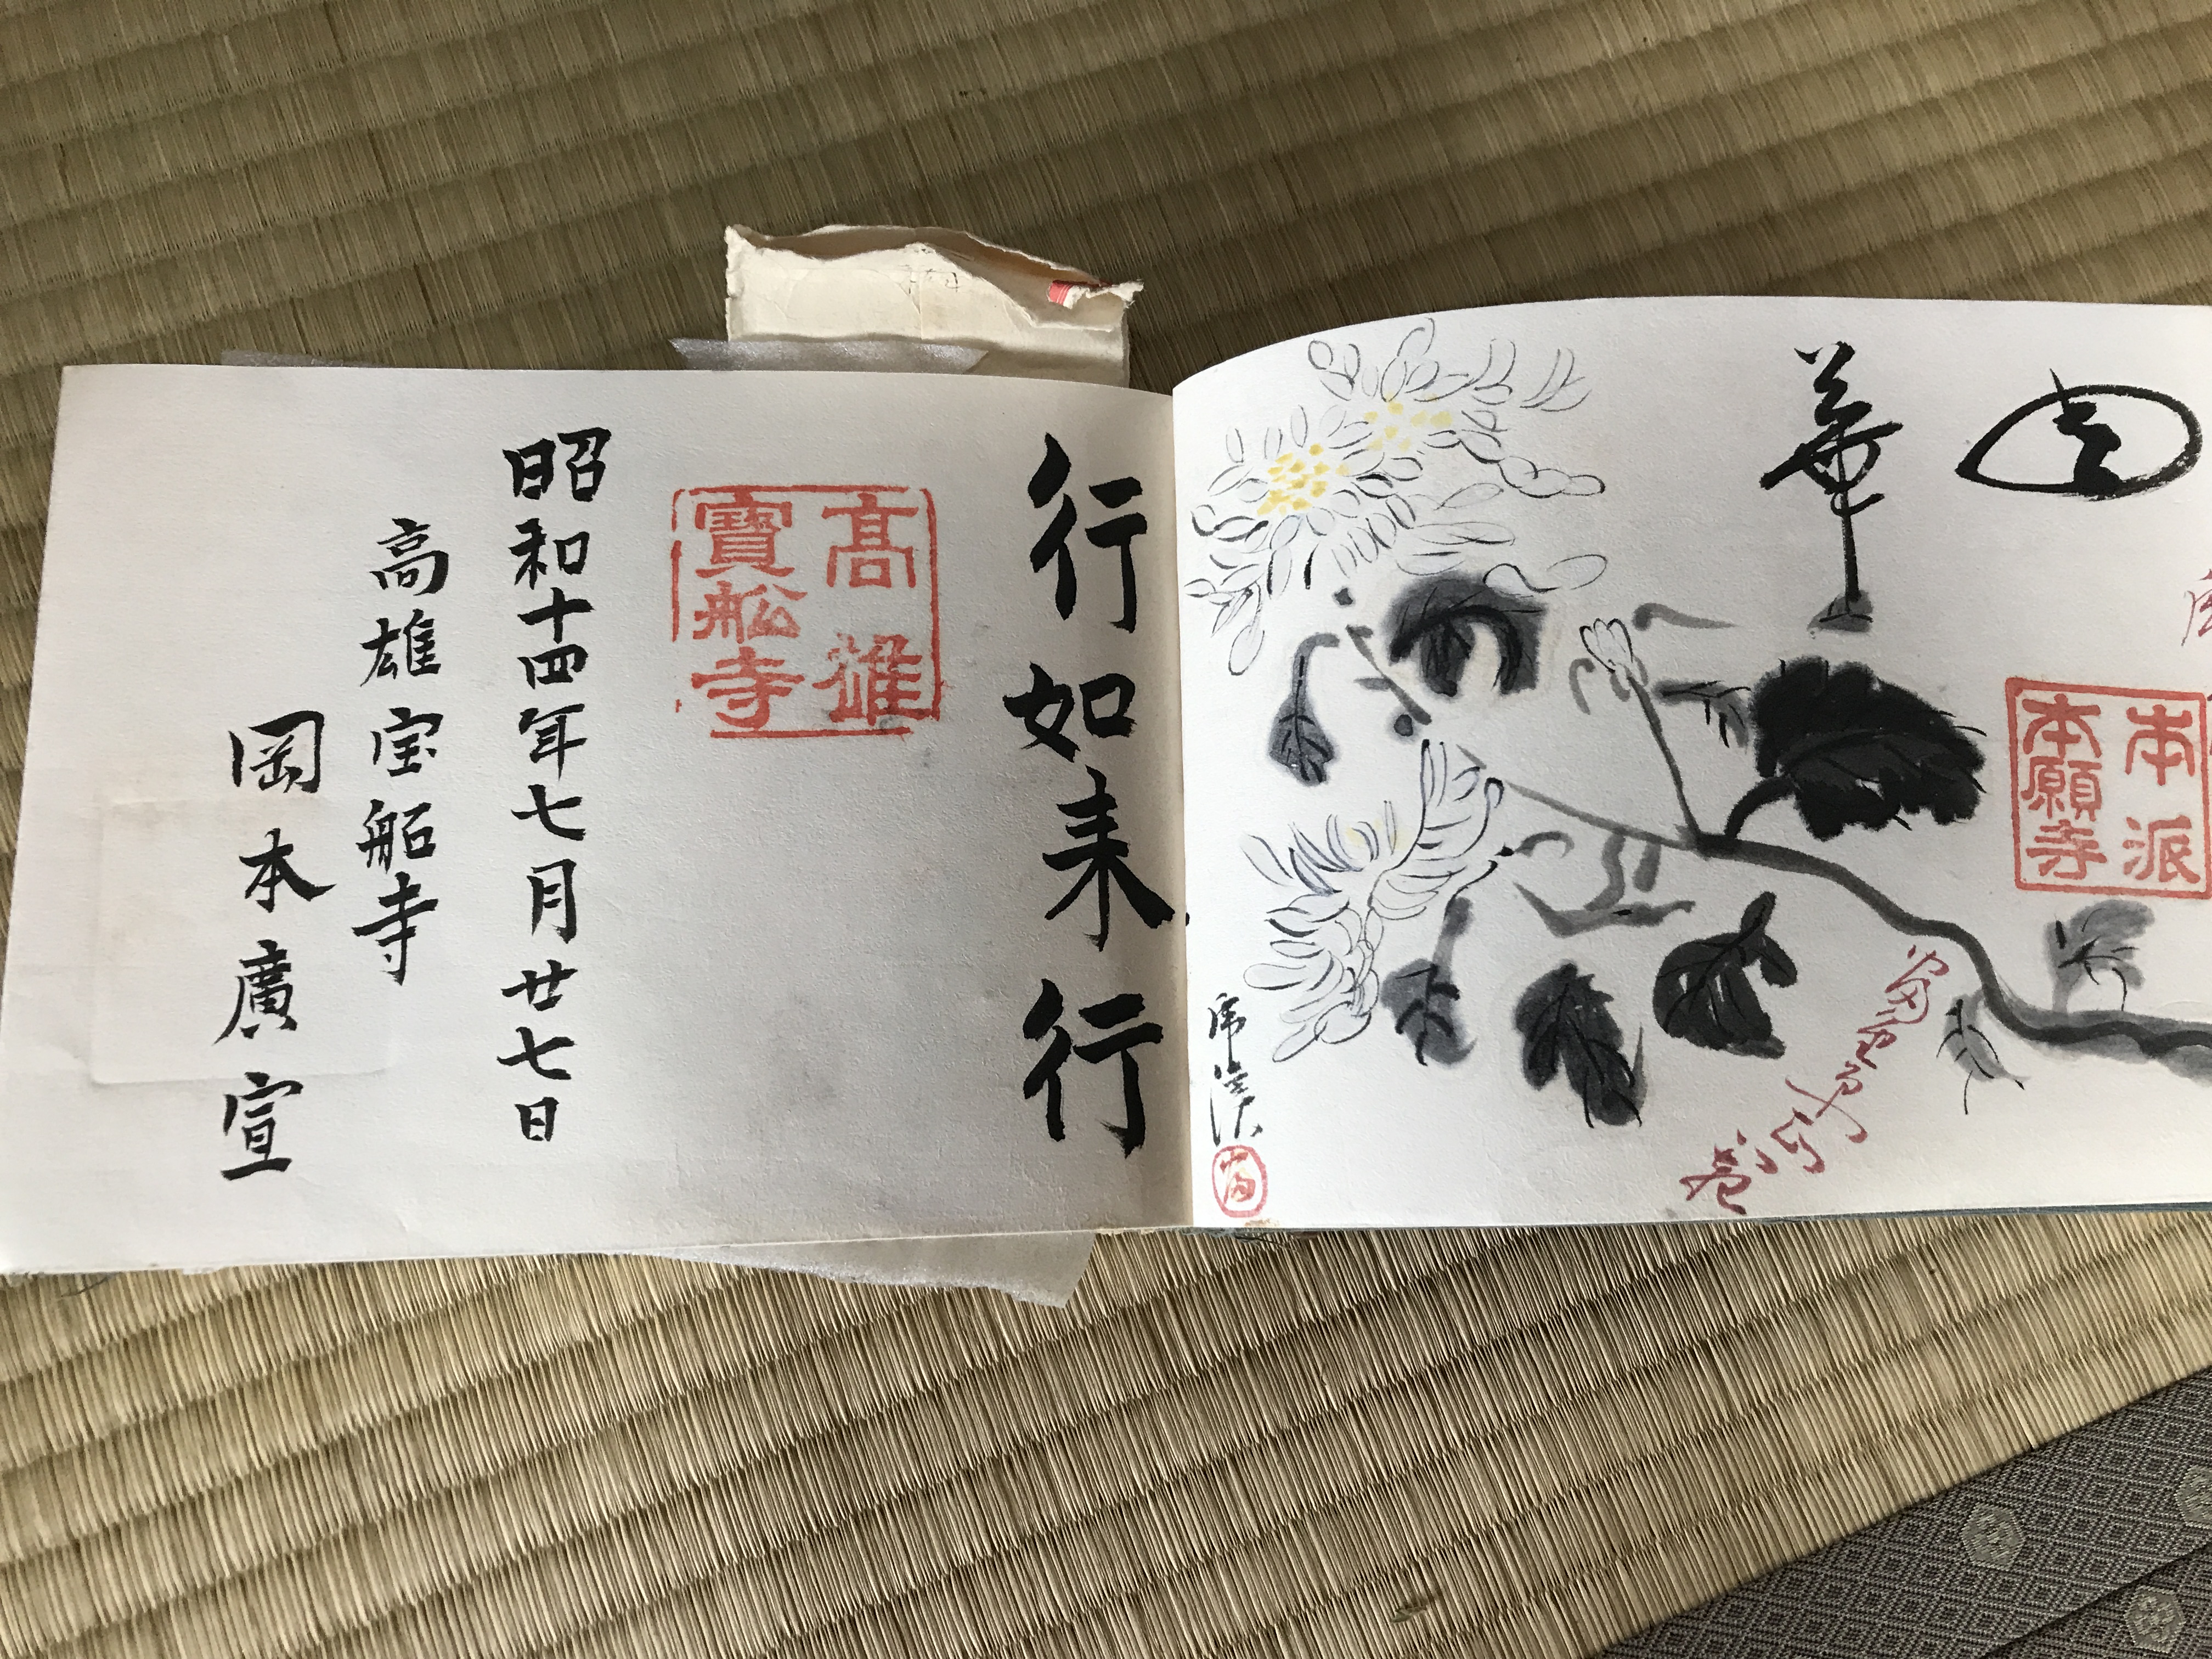 華
本派
本願寺
行如来行
高雄
寶舩寺
昭和十四年七月廿七日
高雄宝船寺
岡本廣宣